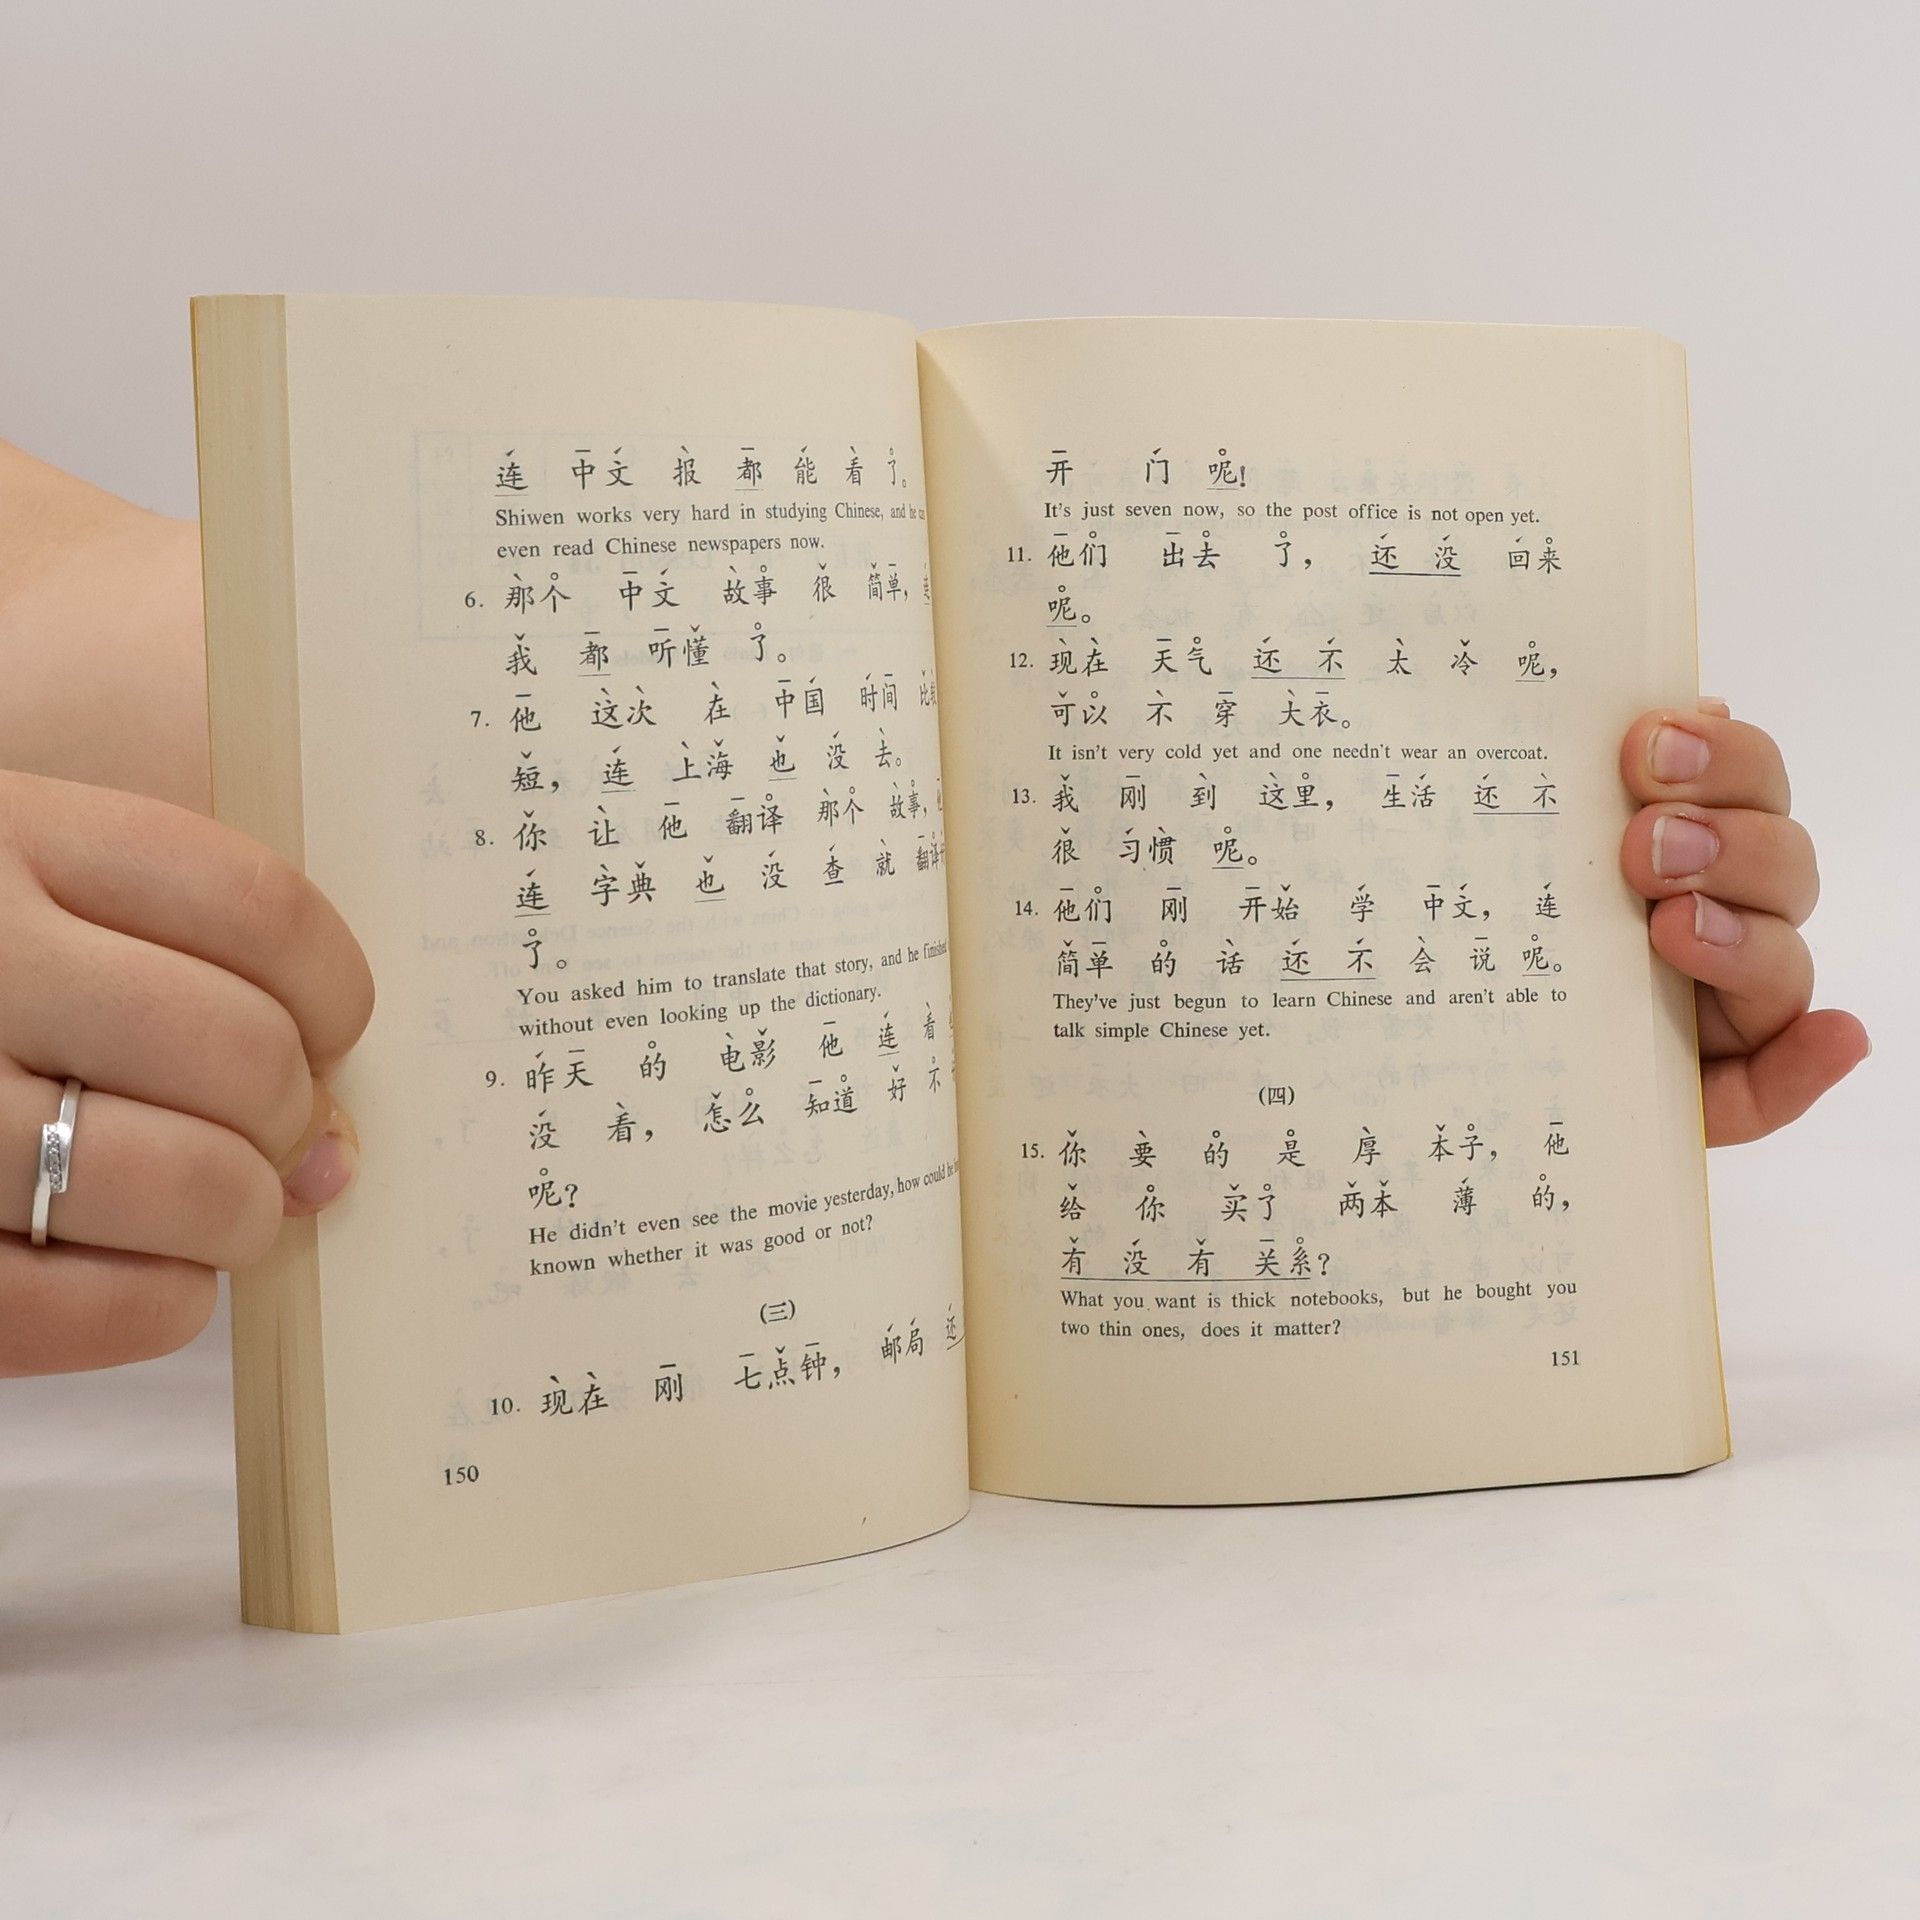 连 中文 报 都 能 看 了。
Shiwen works very hard in studying Chinese, and he
even read Chinese newspapers now.
6. 那个 中文 故事 很 简单, 连
我 都 听懂 了。
7. 他 这次 在 中国 时间 比较
短, 连 上海 也 没 去。
8. 你 让 他 翻译 那个 故事, 他
连 字典 也 没 查 就 翻译
了。
You asked him to translate that story, and he finished
without even looking up the dictionary.
9. 昨天 的 电影 他 连 看
没 看, 怎么 知道 好 不
呢?
He didn't even see the movie yesterday, how could he
known whether it was good or not?
(三)
10. 现在 刚 七点钟, 邮局 还
150
开 门 呢!
It's just seven now, so the post office is not open yet.
11. 他们 出去 了, 还 没 回来
呢。
12. 现在 天气 还 不 太 冷 呢,
可以 不 穿 大衣。
It isn't very cold yet and one needn't wear an overcoat.
13. 我 刚 到 这里, 生活 还 不
很 习惯 呢。
14. 他们 刚 开始 学 中文, 连
简单 的 话 还 不 会 说 呢。
They've just begun to learn Chinese and aren't able to
talk simple Chinese yet.
(四)
15. 你 要 的 是 厚 本子, 他
给 你 买了 两本 薄 的,
有 没 有 关系?
What you want is thick notebooks, but he bought you
two thin ones, does it matter?
151